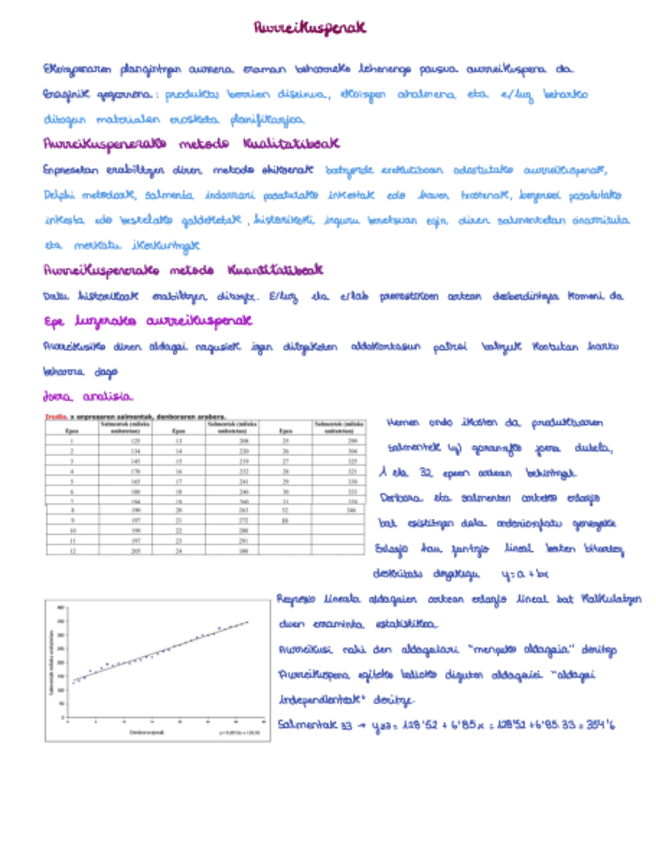 Aurreikuspenak
Ekoizpenaren plangintzan aurrera eraman beharreko lehenengo pausua aurreikuspena da.
Eraginik gogorrena: produktu berrien diseinua, ekoizpen ahalmena eta e/luz beharko
ditugun materialen erosketa planifikazioa.
Aurreikuspenerako metodo kualitatiboak
Enpresetan erabiltzen diren metodo ohikoenak batzorde exekutiboan adostutako aurreikuspenak,
Delphi metodoak, salmenta indarrari pasatutako inkestak edo hauen txostenak, bezeroei pasatutako
inkesta edo bestelako galdeketak, historikoki inguru beretsuan egin diren salmentetan oinarrituta
eta merkatu ikerkuntzak
Aurreikuspenerako metodo kuantitatiboak
Datu historikoak erabiltzen dituzte. E/luz eta e/lab pronostikoen artean desberdintzea komeni da
Epe luzerako aurreikuspenak
Aurreikusiko diren aldagai nagusiek izan ditzaketen aldakortasun patroi batzuk kontutan hartu
beharra dago
Joera analisia
Irudia. x enpresaren salmentak, denboraren arabera.
Epea Salmentak (milaka unitatetan) Epea Salmentak (milaka unitatetan) Epea Salmentak (milaka unitatetan)
1 125 13 208 25 299
2 134 14 220 26 304
3 145 15 219 27 325
4 170 16 232 28 321
5 165 17 241 29 330
6 180 18 246 30 333
7 194 19 31
8 190 20 263 32 346
9 197 21 272 33
10 199 22 280
11 197 23 291
12 205 24 300
Hemen ondo ikusten da produktuaren
salmentek (y) goranzko joera dutela,
1 eta 32 epeen artean behintzat
Denbora eta salmenten arteko erlazio
bat existitzen dela ondorioztatu genezake
Erlazio hau funtzio lineal baten bitartez
deskribatu dezakegu y=a+bx
Regresio lineala aldagaien artean erlazio lineal bat kalkulatzen
duen erraminta estatistikoa.
Aurreikusi nahi den aldagaiari "menpeko aldagaia" deritzo
Aurreikuspena egiteko balioko diguten aldagaiei "aldagai
independienteak" deritze.
Salmentak 33 → y33 = 128'52 + 6'85x = 128'52 + 6'85·33 = 354'6
Salmentak milaka unitateetan
Denbora epeak